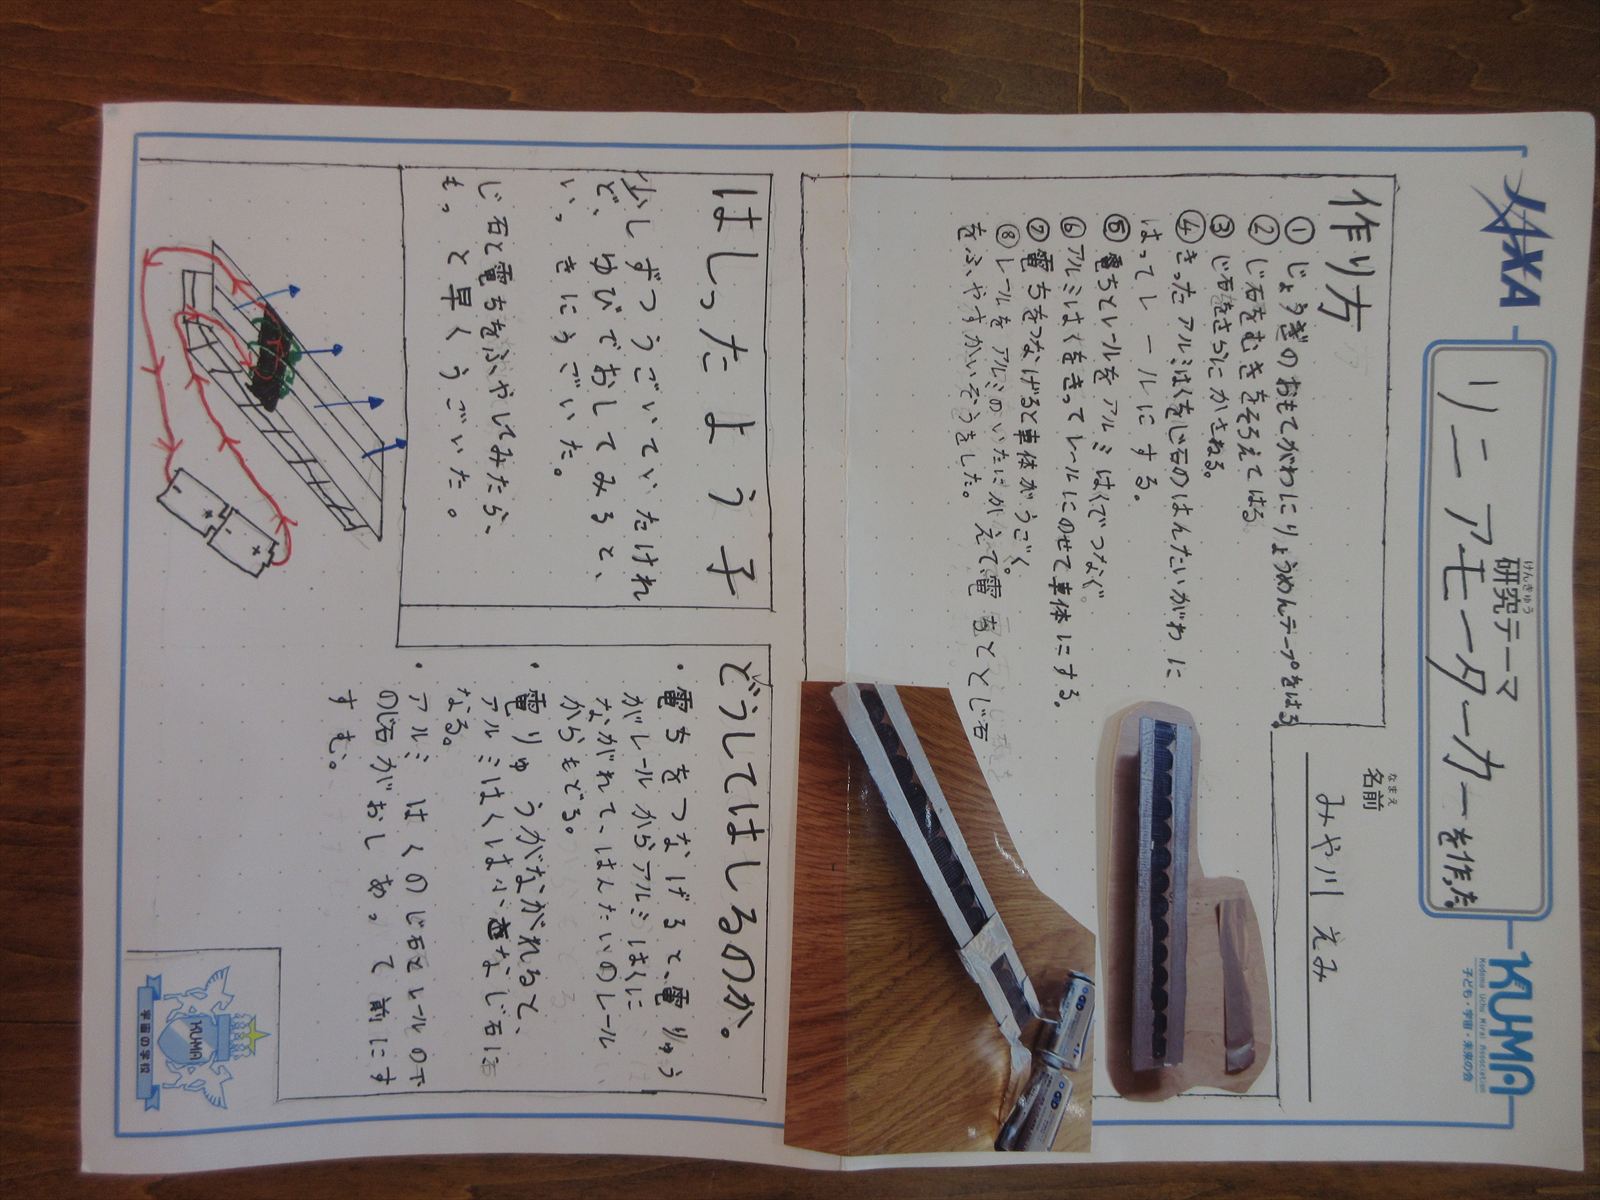 JAXA
研究テーマ
けんきゅう
リニアモーターカーを作った
KUMA
Kodomo Uchu Mirai Association
子ども・宇宙・未来の会
なまえ
名前
みや川 えみ
作り方
① じょうぎのおもてがわにりょうめんテープをはる。
② じ石をむきをそろえてはる
③ じ石をさらにかさねる。
④ きったアルミはくをじ石のはんたいがわに
はってレールにする。
⑤ 電ちとレールをアルミはくでつなぐ。
⑥ アルミはくをきってレールにのせて車体にする。
⑦ 電ちをつなげると車体がうごく。
⑧ レールをアルミのいたにかえて電ちとじ石
をふやすかいぞうをした。
はしったよう子
少しずつうごいていたけれ
ど、ゆびでおしてみると、
いっきにうごいた。
じ石と電ちをふやしてみたら、
もっと早くうごいた。
どうしてはしるのか。
・電ちをつなげると、電りゅう
がレールからアルミはくに
ながれて、はんたいのレール
からもどる。
・電りゅうがながれると、
アルミはくは小さなじ石に
なる。
・アルミはくのじ石とレールの下
のじ石がおしあって前にす
すむ。
KUMA
宇宙の学校